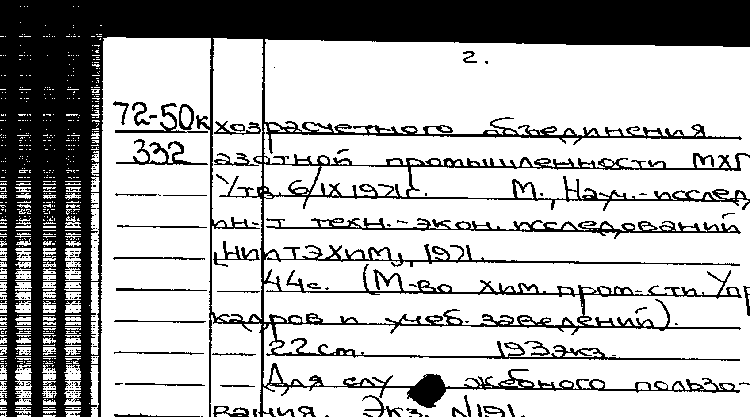 2.
72-50к хозрасчетного объединения
332 азотной промышленности МХП
Утв. 6/IX 1971г. М., Науч.-исслед
ин-т техн.-экон. исследований
"НИИТЭХИМ", 1971.
44с. (М-во хим. пром-сти. Упр
кадров и учеб. заведений).
22см. 193экз.
Для служебного пользо-
вания. Экз. №191.